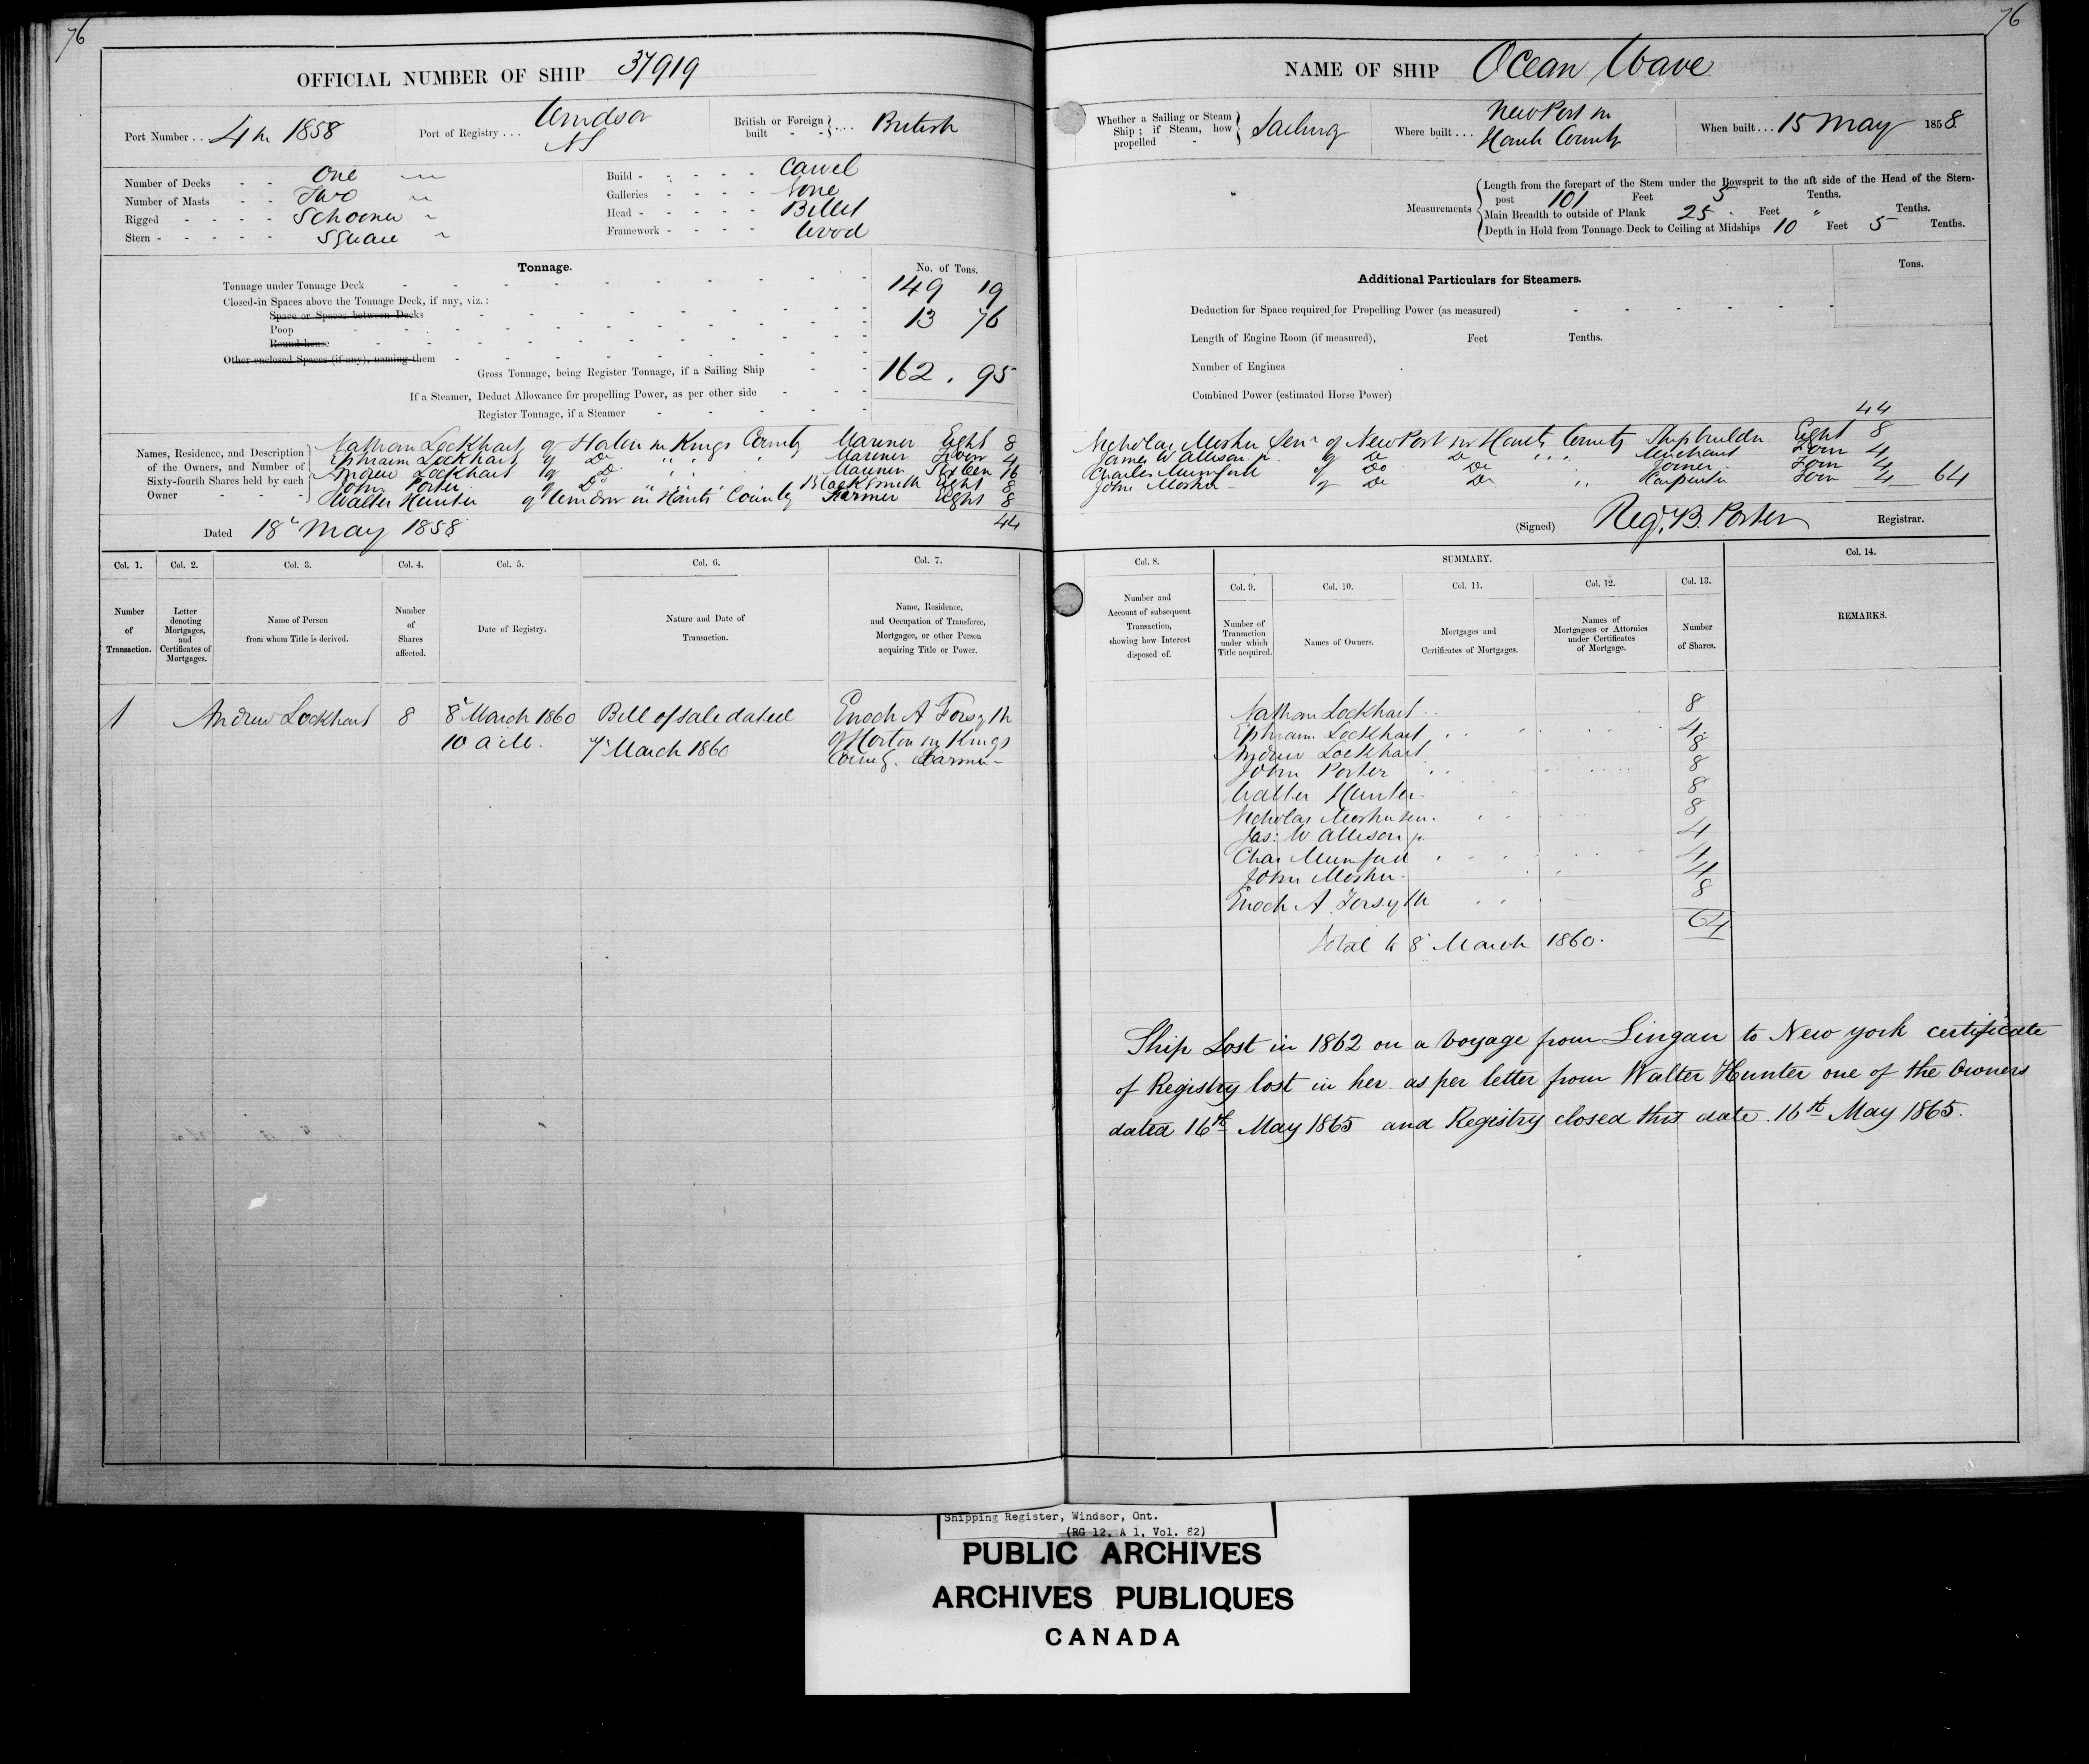 76
OFFICIAL NUMBER OF SHIP 37919
Port Number . . 4 in 1858
Port of Registry . . . Windsor NS
British or Foreign built - - } . . . British
Number of Decks - - One
Number of Masts - - Two
Rigged - - - - Schooner
Stern - - - - - Square
Build - - - - - Carvel
Galleries - - - - None
Head - - - - - Billet
Framework - - - - Wood
Tonnage.
No. of Tons.
Tonnage under Tonnage Deck 149 19
Closed-in Spaces above the Tonnage Deck, if any, viz.:
Space or Spaces between Decks
Poop 13 76
Round-house
Other enclosed Spaces (if any), naming them
Gross Tonnage, being Register Tonnage, if a Sailing Ship 162 . 95
If a Steamer, Deduct Allowance for propelling Power, as per other side
Register Tonnage, if a Steamer
Names, Residence, and Description of the Owners, and Number of Sixty-fourth Shares held by each Owner
Nathan Lockhart of Horton in Kings County Mariner Eight 8
Ephraim Lockhart of Do " " " Mariner Four 4
Andrew Lockhart of Do " " Mariner Sixteen 16
John Porter of Do " " Blacksmith Eight 8
Walter Hunter of Windsor in Hants County Farmer Eight 8
44
Dated 18th May 1858
Col. 1. Col. 2. Col. 3. Col. 4. Col. 5. Col. 6. Col. 7.
Number of Transaction.
Letter denoting Mortgages, and Certificates of Mortgages.
Name of Person from whom Title is derived.
Number of Shares affected.
Date of Registry.
Nature and Date of Transaction.
Name, Residence, and Occupation of Transferee, Mortgagee, or other Person acquiring Title or Power.
1 Andrew Lockhart 8 8 March 1860 Bill of Sale dated Enoch A Forsyth
10 a M. 7 March 1860 of Horton in Kings
County. Farmer
76
NAME OF SHIP Ocean Wave
Whether a Sailing or Steam Ship; if Steam, how propelled - } Sailing
Where built . . . NewPort in Hants County
When built . . . 15 May 1858.
Measurements
Length from the forepart of the Stem under the Bowsprit to the aft side of the Head of the Stern-
post 101 Feet 5 Tenths.
Main Breadth to outside of Plank 25 Feet " Tenths.
Depth in Hold from Tonnage Deck to Ceiling at Midships 10 Feet 5 Tenths.
Additional Particulars for Steamers.
Tons.
Deduction for Space required for Propelling Power (as measured)
Length of Engine Room (if measured), Feet Tenths.
Number of Engines
Combined Power (estimated Horse Power)
44
Nicholas Mosher Senr of NewPort in Hants County Shipbuilder Eight 8
James W Allison jr of Do Do " " Merchant Four 4
Charles Mumford of Do Do Joiner Four 4
John Mosher of Do Do " Carpenter Four 4 64
(Signed) Reg. B. Porter Registrar.
Col. 8. SUMMARY. Col. 14.
Col. 9. Col. 10. Col. 11. Col. 12. Col. 13.
Number and Account of subsequent Transaction, showing how Interest disposed of.
Number of Transaction under which Title acquired.
Names of Owners.
Mortgages and Certificates of Mortgages.
Names of Mortgagees or Attornies under Certificates of Mortgage.
Number of Shares.
REMARKS.
Nathan Lockhart 8
Ephraim Lockhart 4
Andrew Lockhart 8
John Porter 8
Walter Hunter 8
Nicholas Mosher Sen. 8
Jas: W Allison jr. 4
Chas Mumford 4
John Mosher 4
Enoch A Forsyth 8
64
Total to 8 March 1860.
Ship Lost in 1862 on a voyage from Lingan to New York certificate
of Registry lost in her as per letter from Walter Hunter one of the Owners
dated 16th May 1865 and Registry closed this date 16th May 1865.
Shipping Register, Windsor, Ont.
(RG 12, A 1, Vol. 82)
PUBLIC ARCHIVES
ARCHIVES PUBLIQUES
CANADA